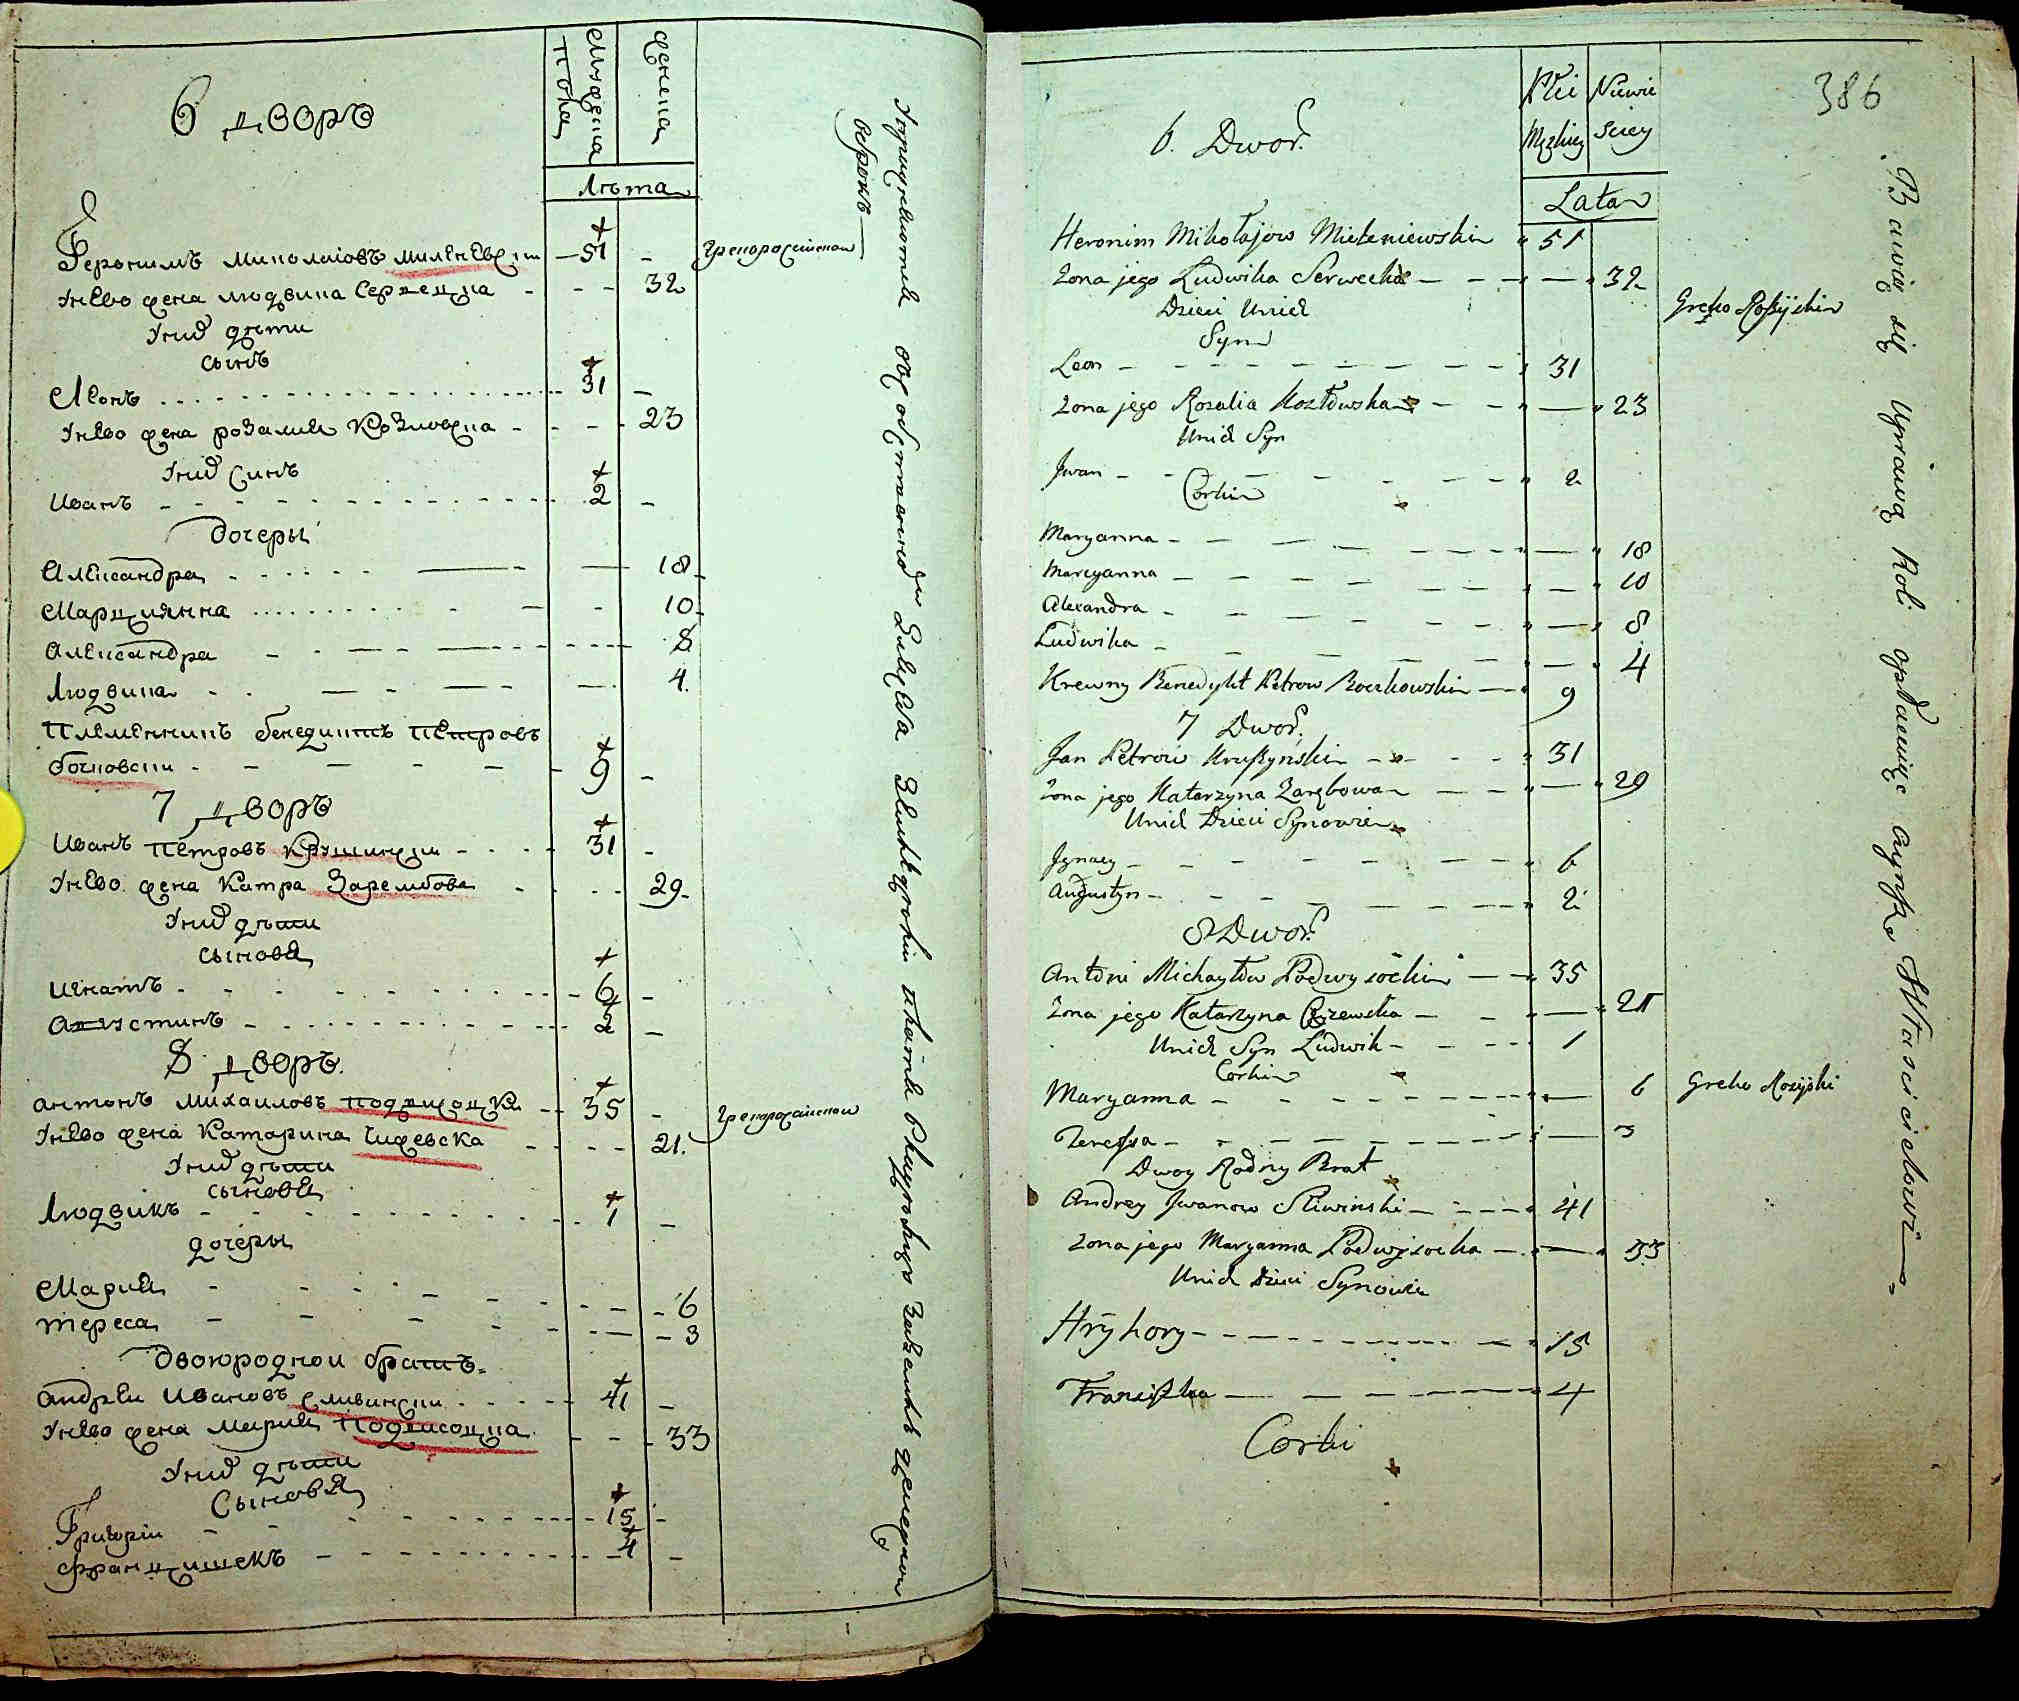 6 дворъ
мужеска пола
женска
Лѣта
Геронимъ Миколаiовъ Миленевски — 51 -
Унево жена людвика Сервецка - - - 32
Унихъ дѣти
сынъ
Леонъ 31 —
Унево жена розалия Козловска - - - 23
Унихъ Синъ
Иванъ - - - 2 -
дочеры
Александра - - - 18
Марциянна - - - 10
Александра - - - 8
Людвика - - - 4.
Племенникъ бенедиктъ Петровъ
бочковски - - - 9 -
7 дворъ
Иванъ Петровъ Крушински - - - 31 -
Унево жена Катра Зарембова - - - 29
Унихъ дѣти
сыновя
Игнатъ - - - 6 -
Августинъ - - - 2 —
8 дворъ.
антонъ михаиловъ подвисоцки - - 35 -
Унево жена Катарина Чижевска - - - 21.
Унихъ дѣти
сыновя
Людвикъ - - - 1 -
дочеры
Мария - - - 6
Тереса - - - 3
двоюродной братъ
андрей Ивановъ Сливински - - - 41 -
Унево жена Мария Подвисоцка - - - 33
Унихъ дѣти
Сыновя
Григорiи - - - 15 -
францишекъ - - - 4 -
грекоросiйской
грекоросiйской
386
6. Dwor.
Płci Męzkiey
Niewiesciey
Lata
Heronim Mikołajow Mieleniewski 51
Zona jego Ludwika Serwecka - - - 32
Dzieci Unich
Syn
Leon - - - 31
Zona jego Rozalia Kozłowska - - - 23
Unich Syn
Jwan - - - 2
Corki
Maryanna - - - 18
Marcyanna - - - 10
Alexandra - - - 8
Ludwika - - - 4
Krewny Benedykt Petrow Boczkowski — 9
7 Dwor.
Jan Petrow Kruszyński - - - 31
Zona jego Katarzyna Zarębowa - - - 29
Unich Dzieci Synowie
Jgnacy - - - 6
Augustyn - - - 2
8 Dwor.
Antoni Michayłow Podwysocki — 35
Zona jego Katarzyna Czyzewska - - - 21
Unich Syn Ludwik - - - 1
Corki
Maryanna - - - 6
Teressa - - - 3
Dwoy Rodny Brat
Andrey Jwanow Sliwinski - - - 41
Zona jego Maryanna Podwysocka - - - 33
Unich dzieci Synowie
Hryhory - - - 15
Franciszka - - - 4
Corki
Greko Rossyiski
Greko Rosyiski
Bawią się Uprawą Roli opłacaiąc Czynsz Włascicielowi